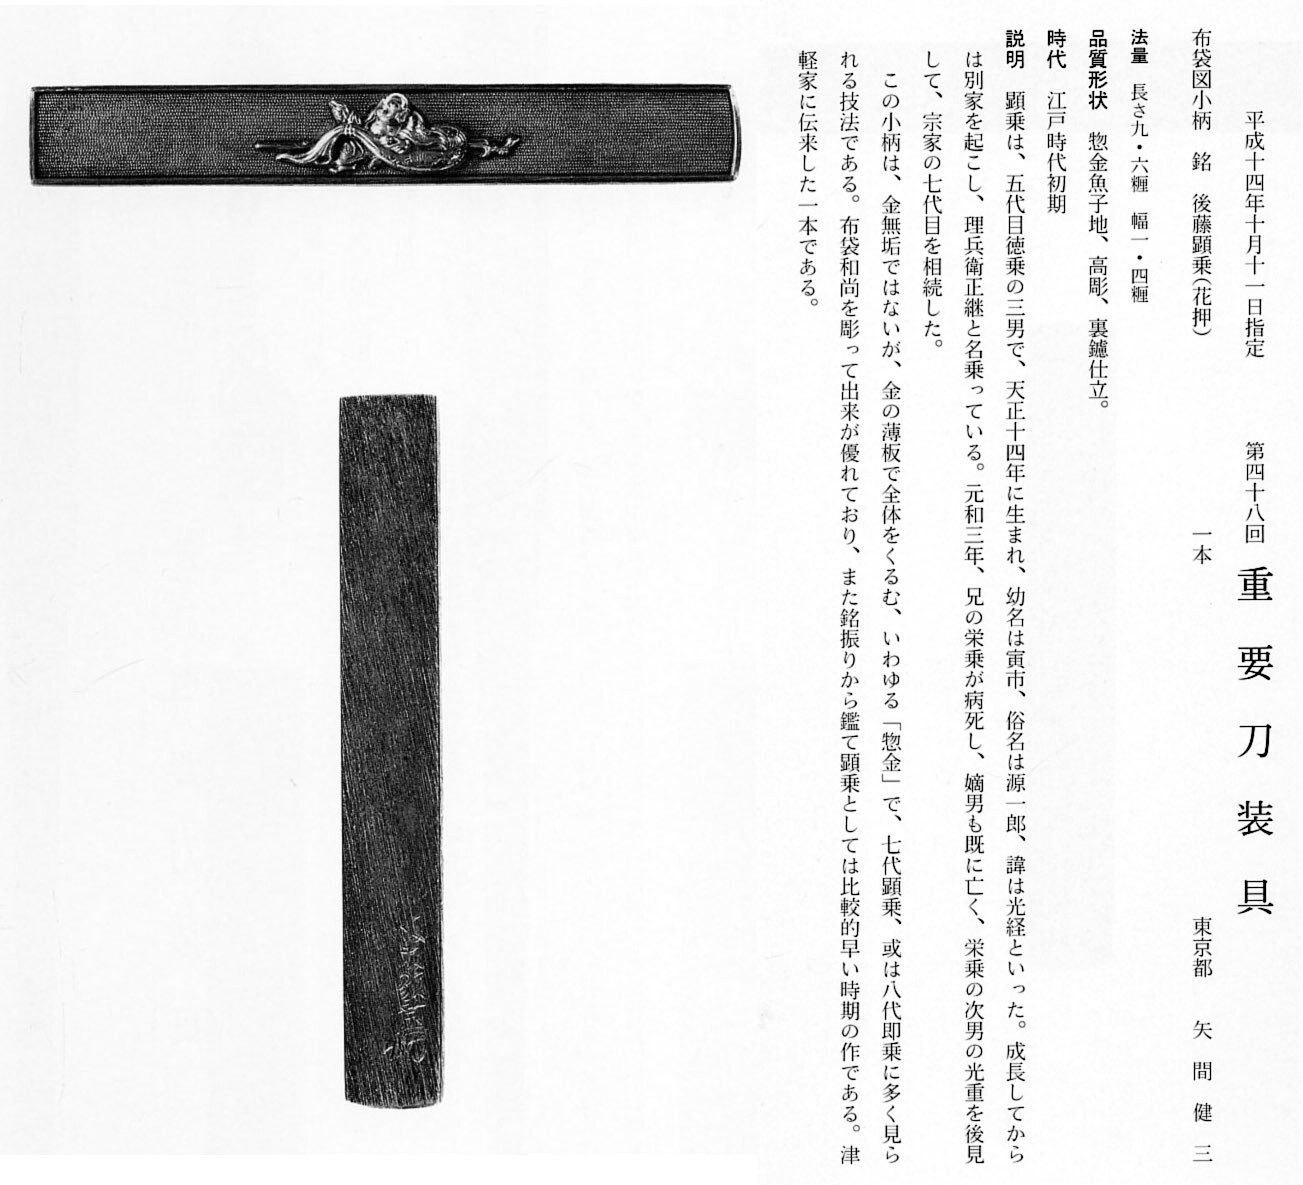 平成十四年十月十一日指定 第四十八回 重要刀装具
布袋図小柄 銘 後藤顕乗(花押) 一本 東京都 矢間健三
法量 長さ九・六糎 幅一・四糎
品質形状 惣金魚子地、高彫、裏鑢仕立。
時代 江戸時代初期
説明 顕乗は、五代目徳乗の三男で、天正十四年に生まれ、幼名は寅市、俗名は源一郎、諱は光経といった。成長してから
は別家を起こし、理兵衛正継と名乗っている。元和三年、兄の栄乗が病死し、嫡男も既に亡く、栄乗の次男の光重を後見
して、宗家の七代目を相続した。
この小柄は、金無垢ではないが、金の薄板で全体をくるむ、いわゆる「惣金」で、七代顕乗、或は八代即乗に多く見ら
れる技法である。布袋和尚を彫って出来が優れており、また銘振りから鑑て顕乗としては比較的早い時期の作である。津
軽家に伝来した一本である。